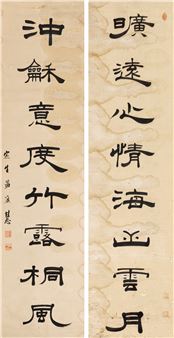 曠遠心情海山雲月
沖龢意度竹露桐風